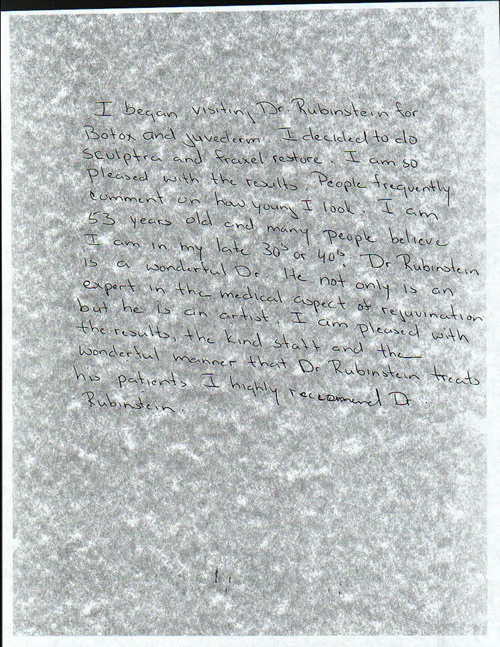 I began visiting Dr. Rubinstein for
Botox and juvederm. I decided to do
sculptra and fraxel restore. I am so
pleased with the results. People frequently
comment on how young I look. I am
53 years old and many people believe
I am in my late 30s or 40s. Dr Rubinstein
is a wonderful Dr. He not only is an
expert in the medical aspect of rejuvination
but he is an artist. I am pleased with
the results, the kind staff and the
wonderful manner that Dr Rubinstein treats
his patients I highly reccomend Dr
Rubinstein.